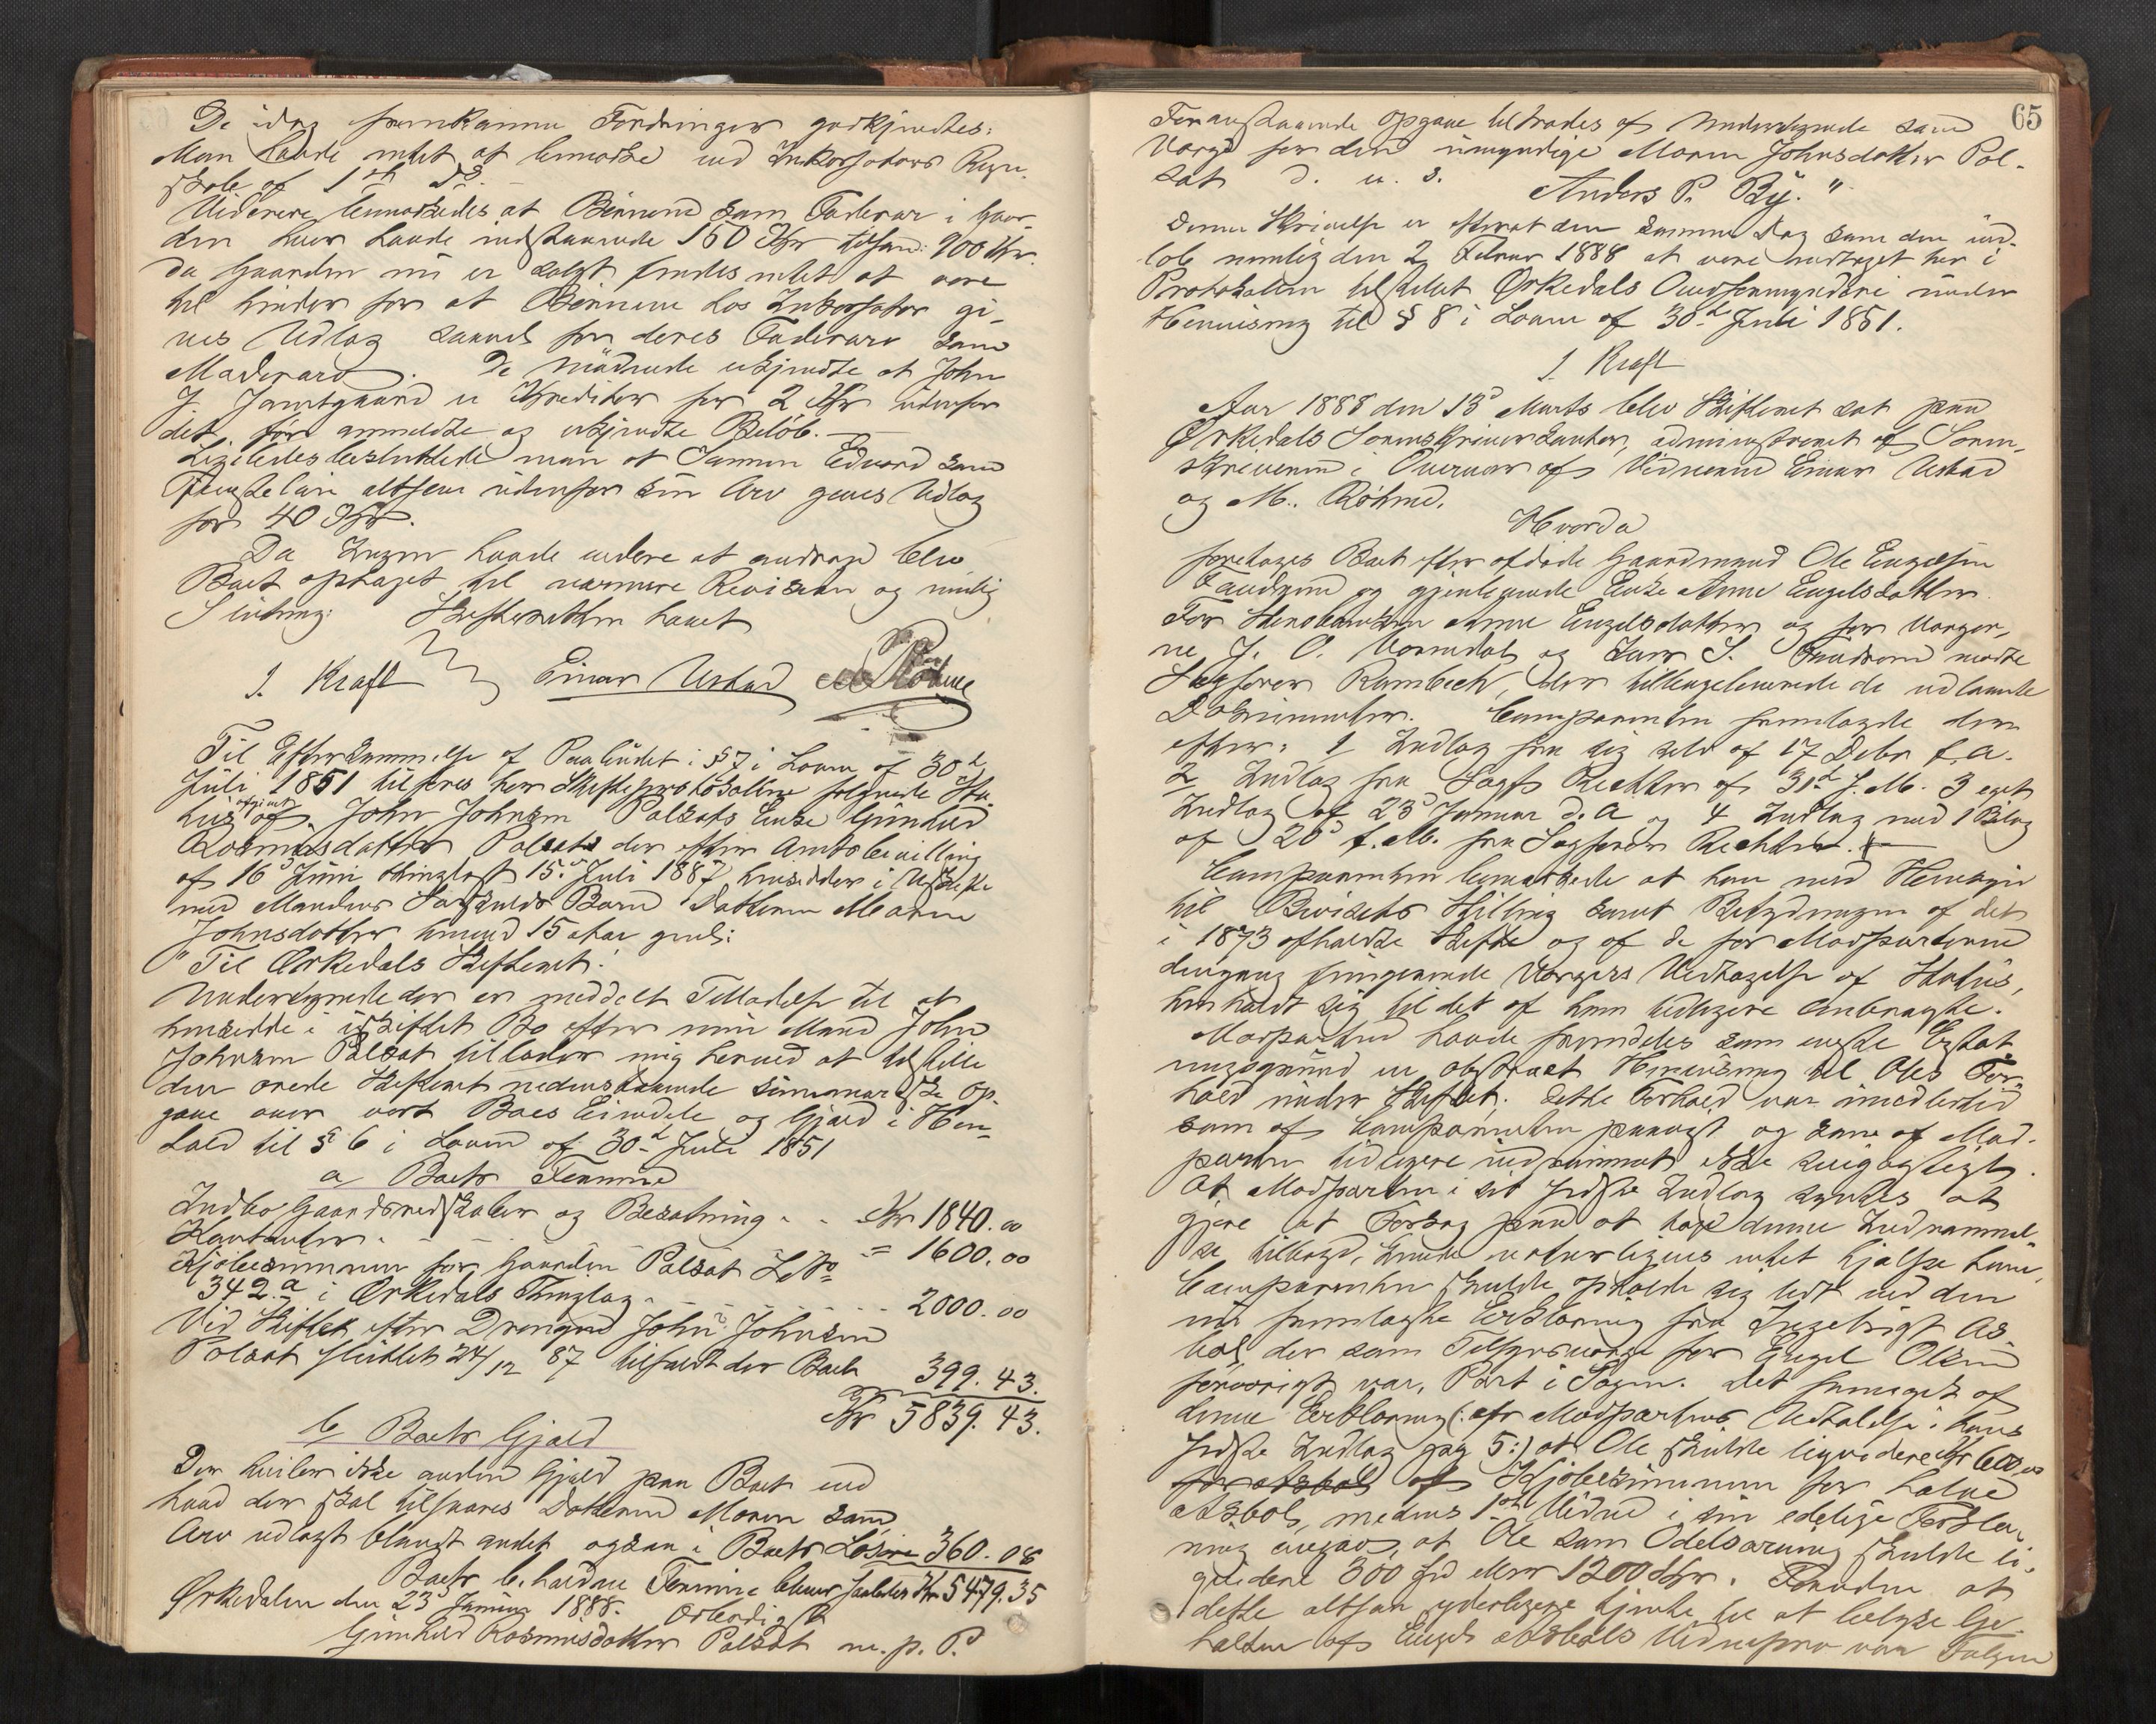 De idag fremkomne Fordringer godkjendtes.
Man havde intet at bemærke ved Inkassators Regn-
skab af 1st ds.
Videre bemærkedes at Børnene som Faderarv i Gaar-
den hver havde indestaaende 150 Kr tilsam: 900 Kr.
da Gaarden nu er solgt findes intet at være
til Hinder for at Børnene hos Inkassator gi-
ves Udlæg saavel for deres Faderarv som
Moderarv. De mødende erkjendte at John
J. Jamtgaard er Kreditor for 2 Kr udenfor
det før anmeldte og erkjendte Beløb.
Ligeledes besluttede man at Sønnen Edvard som
Tjenesteløn altsaa udenfor sin Arv gives Udlæg
for 40 Kr.
Da Ingen havde videre at andrage blev
Boet optaget til nærmere Revision og mulig
Slutning. Skifteretten hævet
J. Kraft Einar Ustad M. Röhme
Til Efterkommelse af Paabudet i § 7 i Loven af 30te
Juli 1851 tilføres her Skifteprotokollen følgende Sta-
tus afgivet af John Johnsen Polsæts Enke Gunhild
Rasmusdatter Polsæt der efter Amtsbevilling
af 16de Juni thinglæst 15de Juli 1887 hensidder i Uskifte
med Mandens Særkulds Barn Datteren Maren
Johnsdatter henved 15 Aar gml:
"Til Orkedals Skifteret!
Undertegnede der er meddelt Tilladelse til at
hensidde i uskiftet Bo efter min Mand John
Johnsen Polsæt tillader mig herved at tilstille
den ærede Skifteret nedenstaaende summariske Op-
gave over vort Boes Eiendele og Gjæld i Hen-
hold til § 6 i Loven af 30te Juli 1851
a, Boets Formue
Indbo Gaardsredskaber og Besætning . . Kr 1840.00
Kontanter . - - - - = 1600.00
Kjøbesummen for Gaarden Polsæt L No
342.a i Orkedals Thinglag . - - - . . . 2000.00
Ved Skiftet efter Drengen John Johnsen
Polsæt sluttet 24/12 87 tilfaldt der Boet 399.43.
Kr 5839.43.
b, Boets Gjæld
Der hviler ikke anden Gjæld paa Boet end
hvad der skal tilsvares Datteren Maren som
Arv udlagt blandt andet ogsaa i Boets Løsøre 360.08
Boets beholdne Formue bliver saaledes Kr 5479.35
Orkedalen den 23de Januar 1888. Ærbødigst
Gunhild Rasmusdatter Polsæt m. p. P.
65
Foranstaaende Opgave tiltrædes af Undertegnede som
Værge for den umyndige Maren Johnsdatter Pol-
sæt D. u. s.
Anders P. By."
Denne Skrivelse er efterat den samme Dag som den ind-
løb nemlig den 2 Februar 1888 at være indtaget her i
Protokollen tilstillet Orkedals Overformynderi under
Henvisning til § 8 i Loven af 30te Juli 1851.
J. Kraft
Aar 1888 den 13de Marts blev Skifteret sat paa
Orkedals Sorenskriverkontor, administreret af Soren-
skriveren i Overvær af Vidnerne Einar Ustad
og M. Röhme.
Hvorda
foretages Boet efter afdøde Gaardmand Ole Engelsen
og gjenlevende Enke Anne Engelsdatter.
For Stervboenken Anne Engelsdatter og for Værger-
ne J. O. Vormdal og Lars S. mødte
Sagfører Rambech, der tilbageleverede de udlaante
Dokumenter. Comparenten fremlagde der-
efter: 1 Indlæg fra sig selv af 17 Debr f. a.
2 Indlæg fra Sagf. Richter af 31te f. M. 3 eget
Indlæg af 23de Januar d. A og 4 Indlæg med 1 Bilag
af 20de f. M. fra Sagfører Richter.
Comparenten bemærkede at han med Hensyn
til Bevisets Stilling samt Betydningen af det
i 1873 afholdte Skifte og af de for Modparterne
dengang fungerende Værgers Vedtagelse af Status,
henholdt sig til det af ham tidligere Anbragte.
Modparten havde fremdeles som eneste
en abstract Henvisning til Oles For-
hold under Skiftet; dette Forhold var imidlertid
som af Comparenten paavist og som af Mod-
parten tidligere indrømmet ikke
At Modparten i sit sidste Indlæg synes at
gjøre et Forsøg paa at tage denne Indrømmel-
se tilbage, kunde naturligvis intet hjælpe ham,
Comparenten skulde opholde sig lidt ved den
nu fremlagte Erklæring fra Ingebrigt As-
bøl, der som Tilsynsværge for Engel Olsen
forøvrigt var Part i Sagen. Det fremgik af
denne Erklæring (: cfr Modpartens Udtalelse i hans
sidste Indlæg pag 5:) at Ole skulde liqvidere Kr 600.00
for Asbøl af Kjøbesummen for halve
Asbøl, medens 1ste Vidne i sin edelige Forkla-
ring angav, at Ole som Odelsarving skulde li-
qvidere 300 Spd eller 1200 Kr. Foruden at
dette altsaa yderligere tjente til at belyse Ge-
halten af Engel Asbøls Vidneprov var Følgen